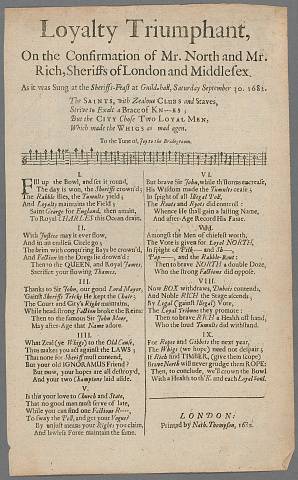 Loyalty Triumphant,
On the Confirmation of Mr. North and Mr.
Rich, Sheriffs of London and Middlesex.
As it was Sung at the Sheriffs-Feast at Guildhall, Saturday September 30. 1682.
The SAINTS, with Zealous CLUBS and Staves,
Strive to Exalt a Brace of KN——ES;
But the CITY Chose TWO LOYAL MEN,
Which made the WHIGS as mad agen.
To the Tune of, Joy to the Bridegroom.
I.
Fill up the Bowl, and set it round,
The day is won, the Sheriffs crown'd;
The Rabble flies, the Tumults yield;
And Loyalty maintains the Field;
Saint George for England, then amain,
To Royal CHARLES this Ocean drain.
II.
With Justice may it ever flow,
And in an endless Circle go;
The brim with conquering Bays be crown'd,
And Faction in the Dregs be drown'd:
Then to the QUEEN, and Royal James,
Sacrifice your flowing Thames.
III.
Thanks to Sir John, our good Lord Mayor,
'Gainst Sheriffs Tricks He kept the Chair;
The Court and City's Right maintains,
While head-strong Faction broke the Reins:
Then to the famous Sir John Moor,
May after-Age that Name adore.
IIII.
What Zeal (ye Whigs) to the Old Cause,
Thus makes you act against the LAWS;
That none for Sheriff must contend,
But your old IGNORAMUS Friend?
But now, your hopes are all destroy'd,
And your two Champions laid aside.
V.
Is this your love to Church and State,
That no good man must serve of late,
While you can find one Factious R——,
To sway the Poll, and get your Vogue?
By unjust means your Rights you claim,
And lawless Force maintain the same.
VI.
But brave Sir John, while th' Storms encrease,
His Wisdom made the Tumults cease;
In spight of all Illegal Poll,
The Routs and Ryots did controul:
Whence He shall gain a lasting Name,
And after-Age Record His Fame.
VII.
Amongst the Men of chiefest worth,
The Vote is given for Loyal NORTH,
In spight of Pilk—— and Sh——
Pap——, and the Rabble-Rout:
Then to brave NORTH a double Doze,
Who the strong Factions did oppose.
VIII.
Now BOX withdraws, Dubois contends,
And Noble RICH the Stage ascends,
By Legal ('gainst Illegal) Vote,
The Loyal Tribunes they promote:
Then to brave RICH a Health off hand,
Who the loud Tumults did withstand.
IX.
For Ropes and Gibbets the next year,
The Whigs (we hope) need not despair;
If Rich find TIMBER, (give them scope)
Brave North will never grudge them ROPE:
Then, to conclude, we'll crown the Bowl
With a Health to th' K. and each Loyal Soul.
LONDON:
Printed by Nath. Thompson, 1682.